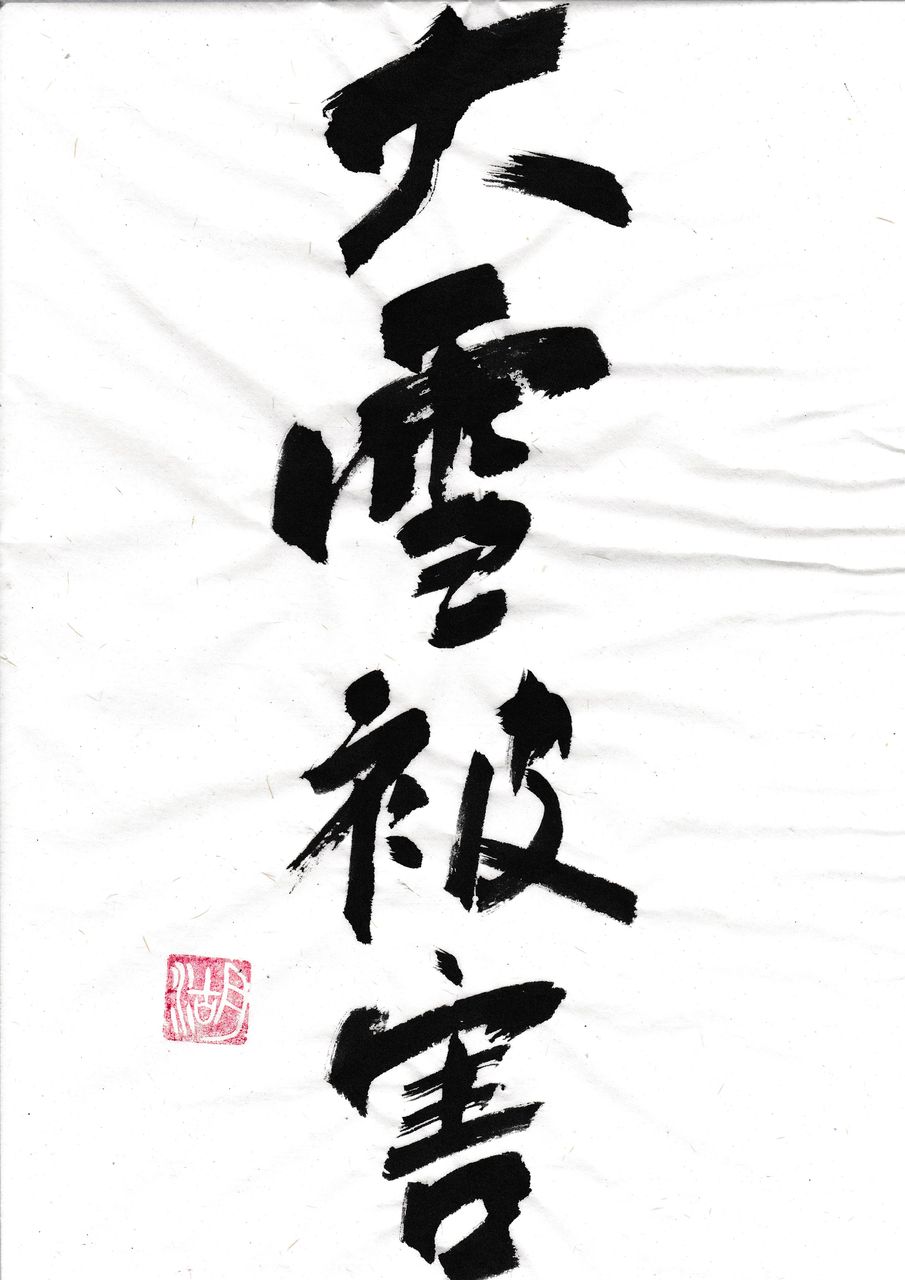 大雪被害
湖